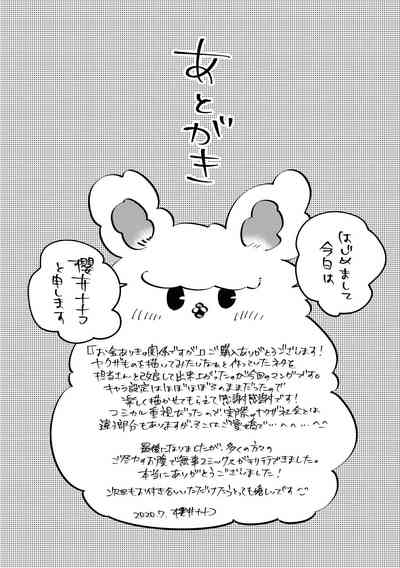 あとがき
はじめまして
今日は
櫻井ナナコ
と申します
「お金ありきの関係ですが」ご購入ありがとうございます!
ヤクザものを描いてみたいなぁと作っていたネタを
担当さんと改良して出来上がったのが今回のマンガです。
キャラ設定はほぼほぼそのままだったので
楽しく描かせてもらえて感謝感謝です!
コミカル重視だったので実際のヤクザ社会とは
違う部分もありますが、そこはご愛嬌で…へへ…へへ
最後になりましたが、多くの方々の
ご尽力のお陰で無事コミックスができました。
本当にありがとうございました!
次回もお付き合いいただけたらとっても嬉しいです
2020.7. 櫻井ナナコ